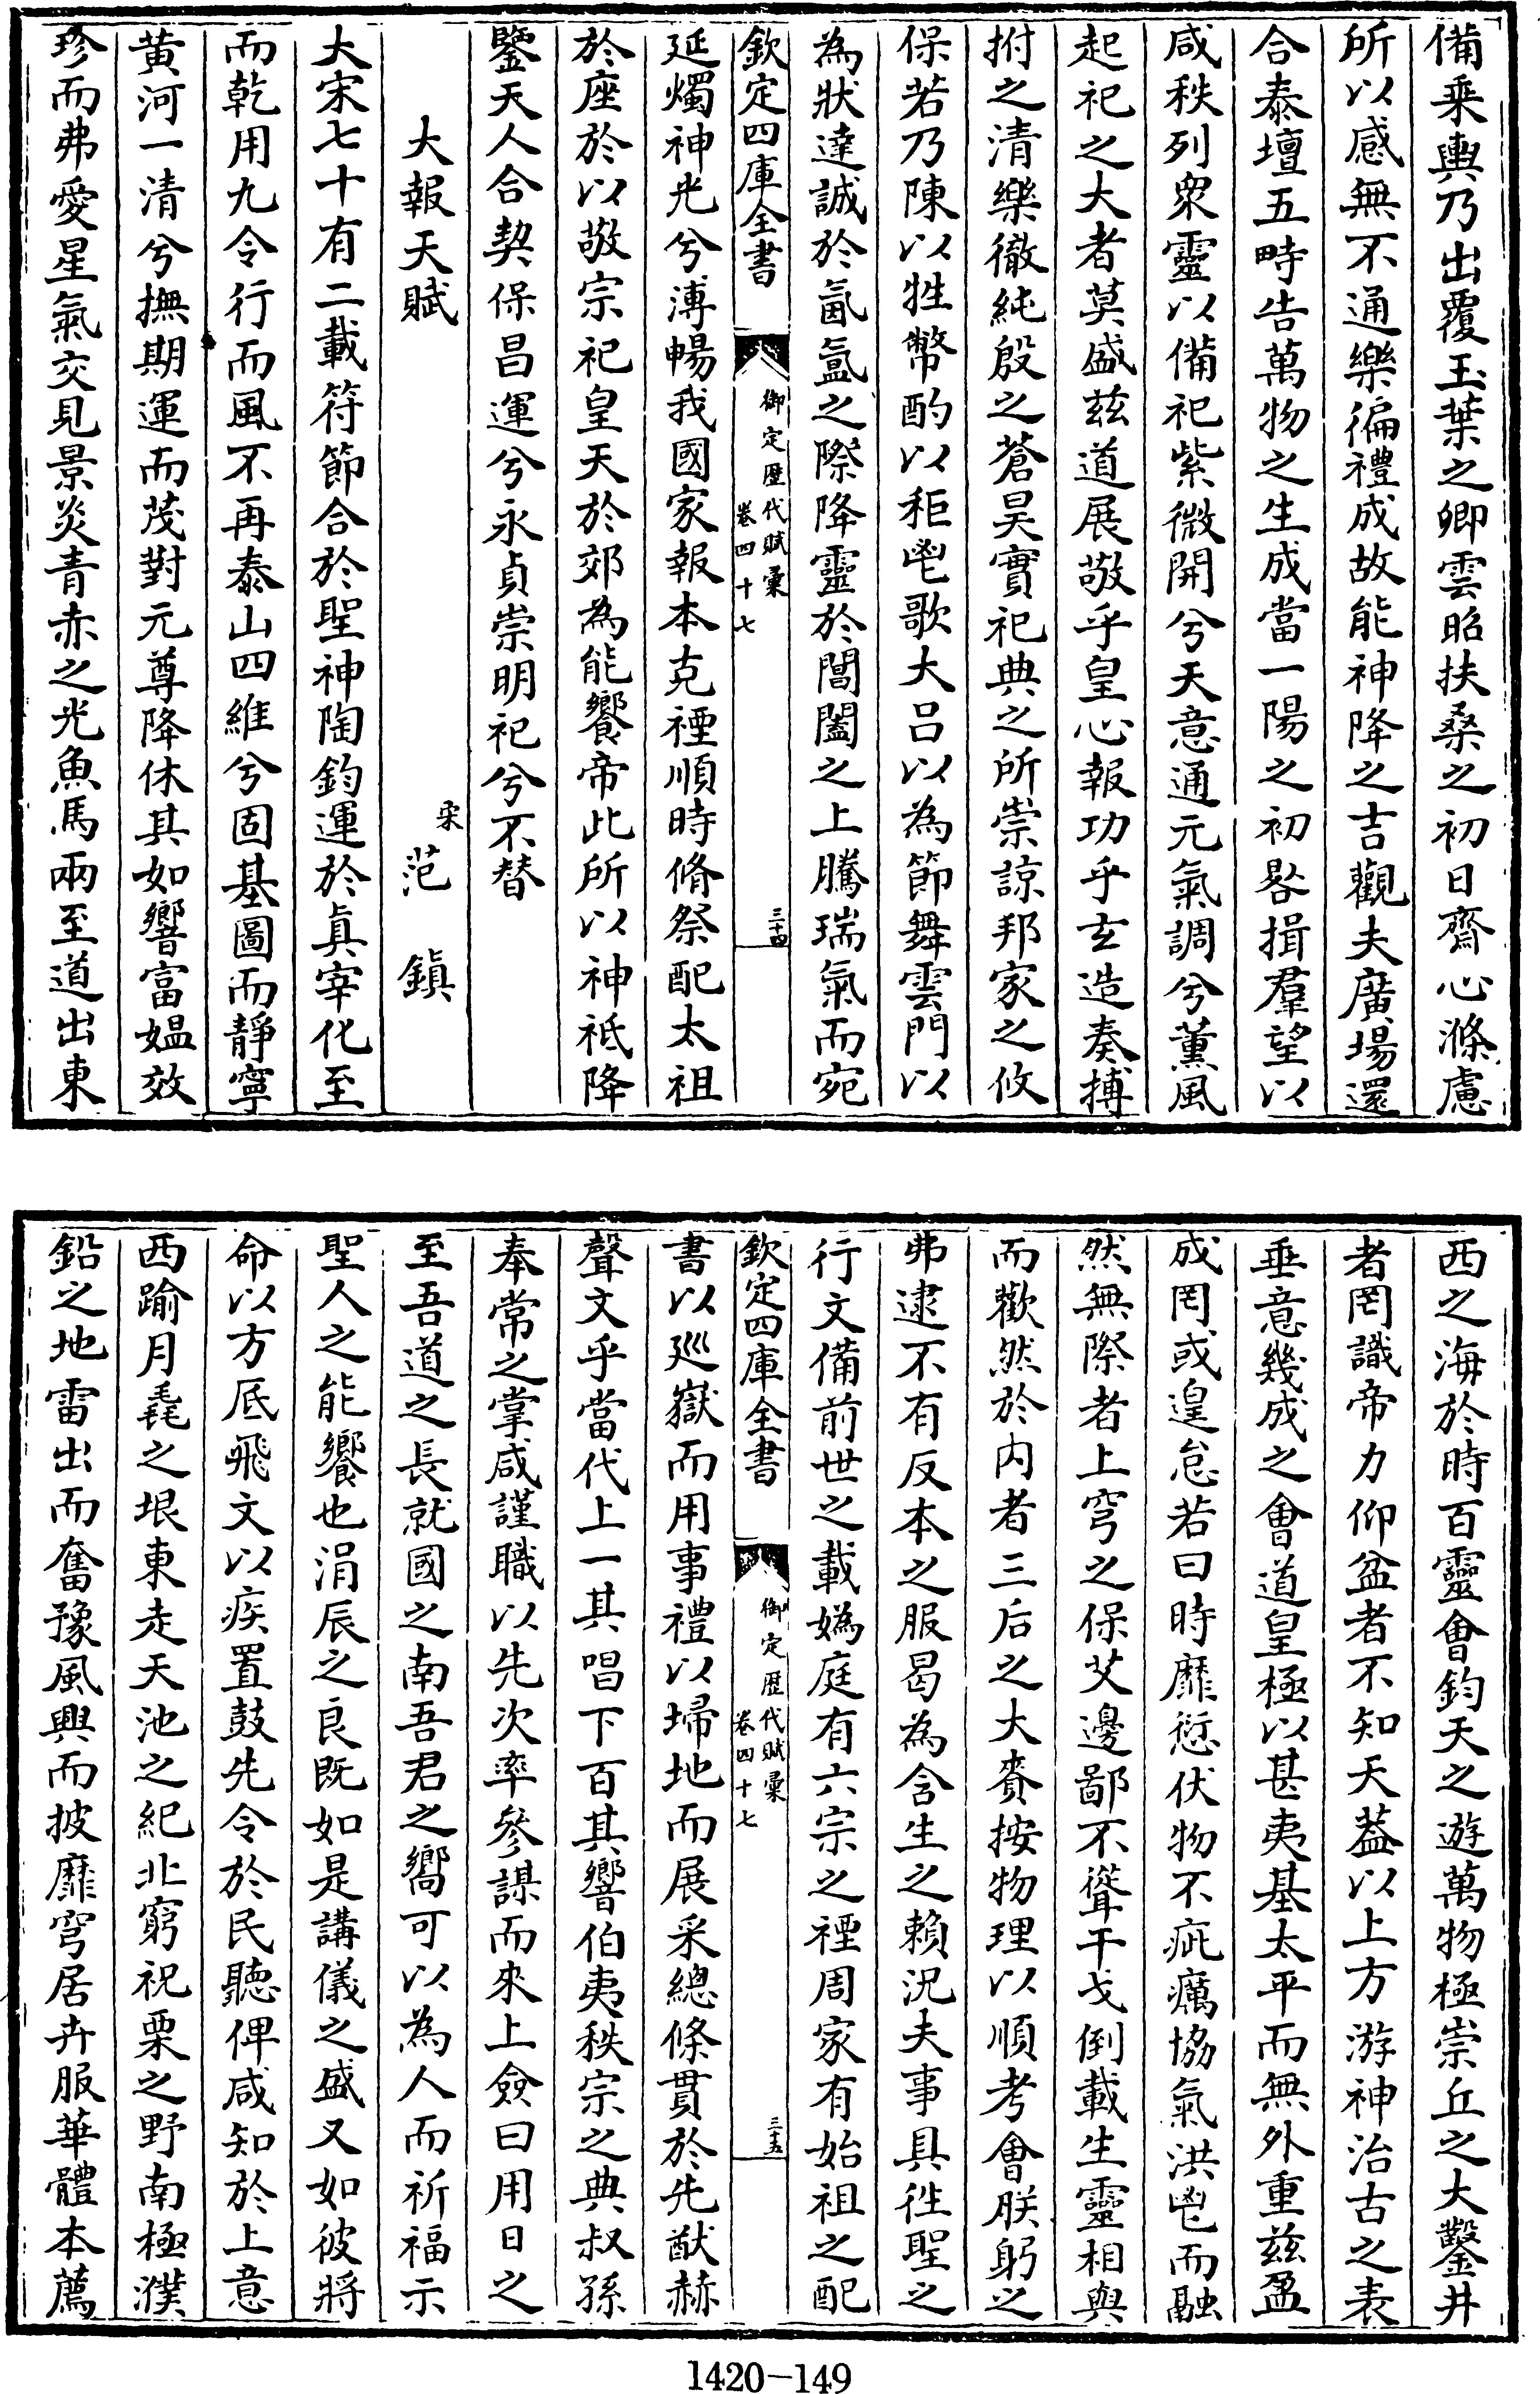 備乘輿乃出覆玉葉之卿雲昭扶桑之初日齋心滌慮
所以感無不通樂徧禮成故能神降之吉觀夫廣場還
合泰壇五畤告萬物之生成當一陽之初晷揖羣望以
咸秩列衆靈以備祀紫微開兮天意通元氣調兮薰風
起祀之大者莫盛茲道展敬乎皇心報功乎玄造奏搏
拊之清樂徹純殷之蒼昊實祀典之所崇諒邦家之攸
保若乃陳以牲幣酌以秬鬯歌大呂以為節舞雲門以
為狀達誠於氤氳之際降靈於閶闔之上騰瑞氣而宛
欽定四庫全書
御定歷代賦彙
卷四十七
三十四
延燭神光兮溥暢我國家報本克禋順時脩祭配太祖
於座於以敬宗祀皇天於郊為能饗帝此所以神祇降
鑒天人合契保昌運兮永貞崇明祀兮不替
大報天賦
宋范鎮
大宋七十有二載符節合於聖神陶鈞運於眞宰化至
而乾用九令行而風不再泰山四維兮固基圖而靜寧
黃河一清兮撫期運而茂對元尊降休其如響富媼效
珍而弗愛星氣交見景炎青赤之光魚馬兩至道出東
西之海於時百靈會鈞天之遊萬物極崇丘之大鑿井
者罔識帝力仰盆者不知天葢以上方游神治古之表
垂意幾成之會道皇極以甚夷基太平而無外重茲盈
成罔或遑怠若曰時靡愆伏物不疵癘協氣洪鬯而融
然無際者上穹之保艾邊鄙不聳干戈倒載生靈相與
而歡然於内者三后之大賚按物理以順考會朕躬之
弗逮不有反本之服曷為含生之賴況夫事具徃聖之
行文備前世之載嬀庭有六宗之禋周家有始祖之配
欽定四庫全書
御定歷代賦彙
卷四十七
三十五
書以廵嶽而用事禮以埽地而展采總條貫於先猷赫
聲文乎當代上一其唱下百其響伯夷秩宗之典叔孫
奉常之掌咸謹職以先次率參謀而來上僉曰用日之
至吾道之長就國之南吾君之嚮可以為人而祈福示
聖人之能饗也涓辰之良既如是講儀之盛又如彼將
命以方底飛文以疾置鼓先令於民聽俾咸知於上意
西踰月毳之垠東走天池之紀北窮祝栗之野南極濮
鉛之地雷出而奮豫風興而披靡穹居卉服華體本薦
1420-149